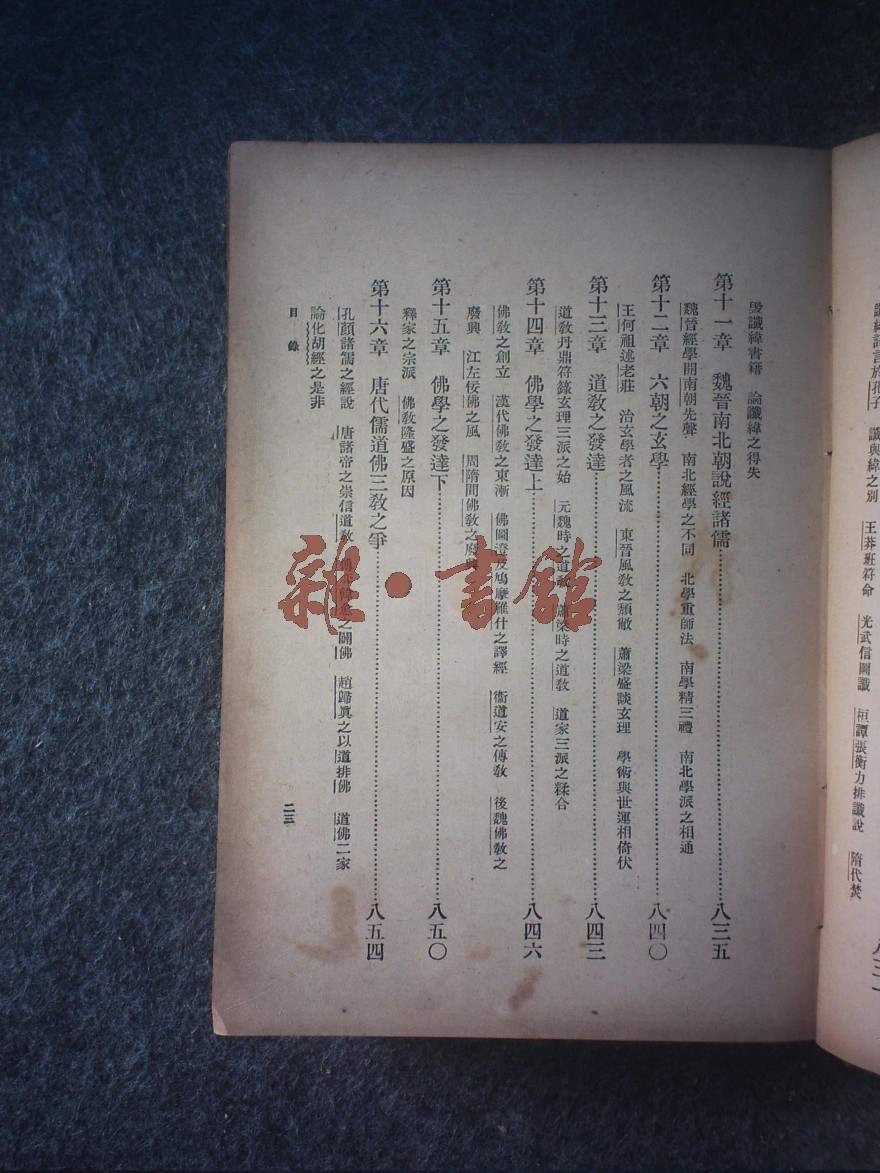 讖與緯之別　王莽班符命　光武信圖讖　桓譚張衡力排讖說　隋代焚
毀讖緯書籍　論讖緯之得失
第十一章　魏晉南北朝說經諸儒…………八三五
魏晉經學開南朝先聲　南北經學之不同　北學重師法　南學精三禮　南北學派之相通
第十二章　六朝之玄學…………八四〇
王何祖述老莊　治玄學者之風流　東晉風教之頹敝　蕭梁盛談玄理　學術與世運相倚伏
第十三章　道教之發達…………八四三
道教丹鼎符籙玄理三派之始　元魏時之道教　蕭梁時之道教　道家三派之糅合
第十四章　佛學之發達上…………八四六
佛教之創立　漢代佛教之東漸　佛圖澄及鳩摩羅什之譯經　衞道安之傳教　後魏佛教之
廢興　江左佞佛之風　周隋間佛教之廢興
第十五章　佛學之發達下…………八五〇
釋家之宗派　佛教隆盛之原因
第十六章　唐代儒道佛三教之爭…………八五四
孔顏諸儒之經說　唐諸帝之崇信道教　之闢佛　趙歸眞之以道排佛　道佛二家
論化胡經之是非
目錄
二三
雜·書館